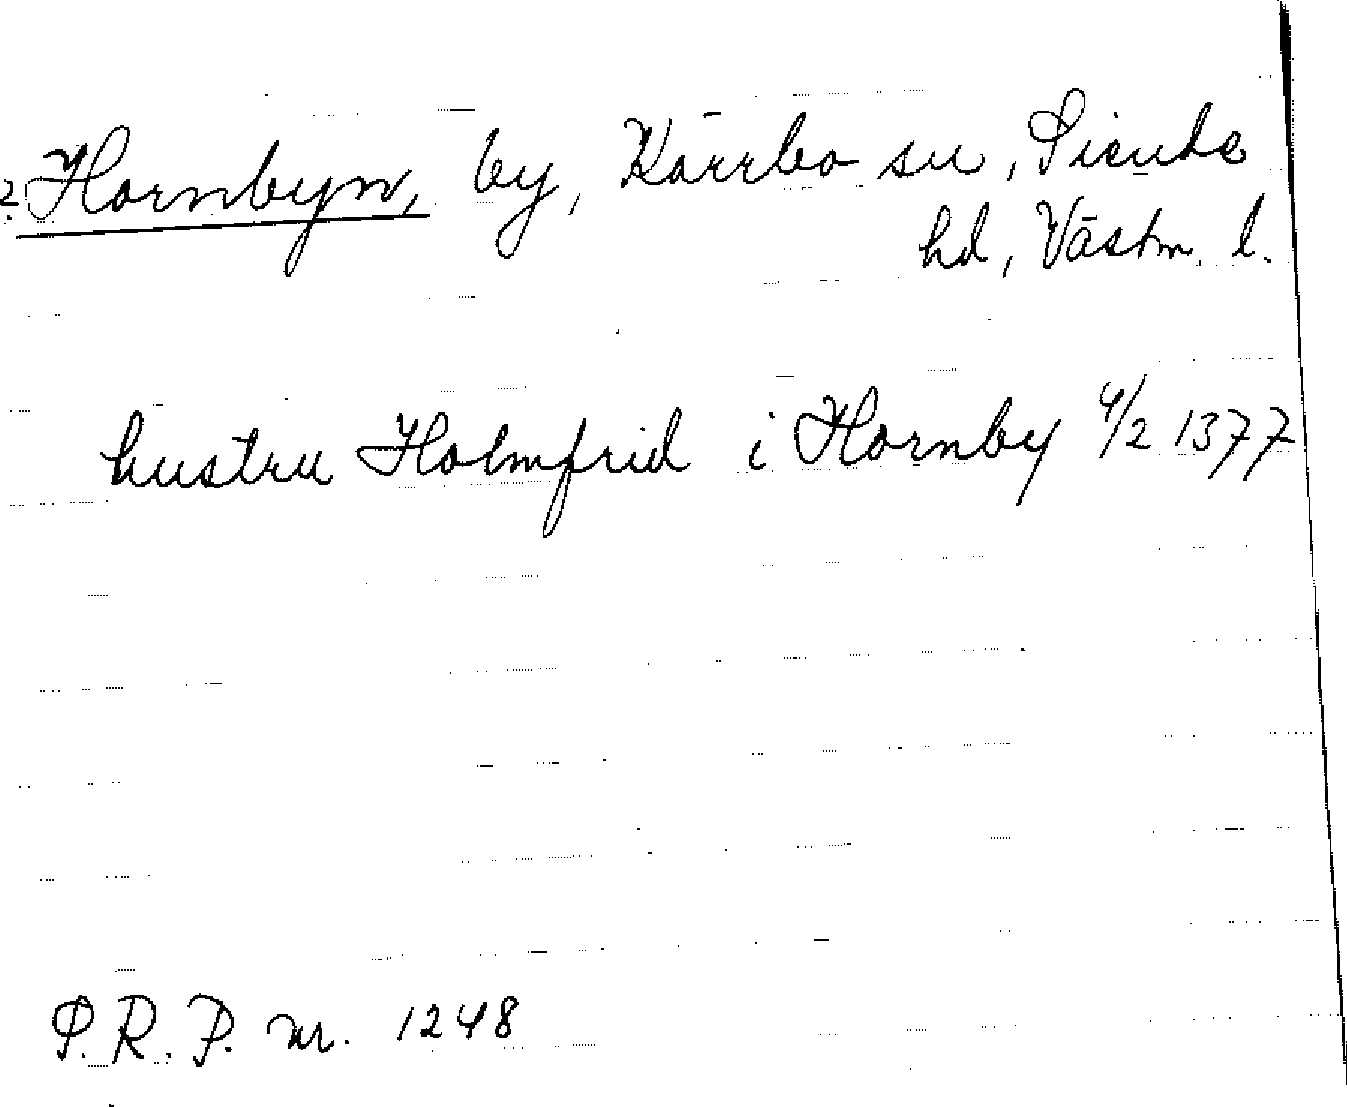 ? Hornbyn, by, Kärrbo sn, Siende
hd, Västm. l.
hustru Holmfrid i Hornby 4/2 1377
P.R.P. nr. 1248